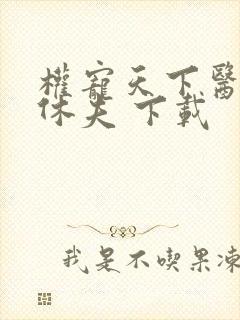 權寵天下醫
休夫 下載
我是不喫果凍